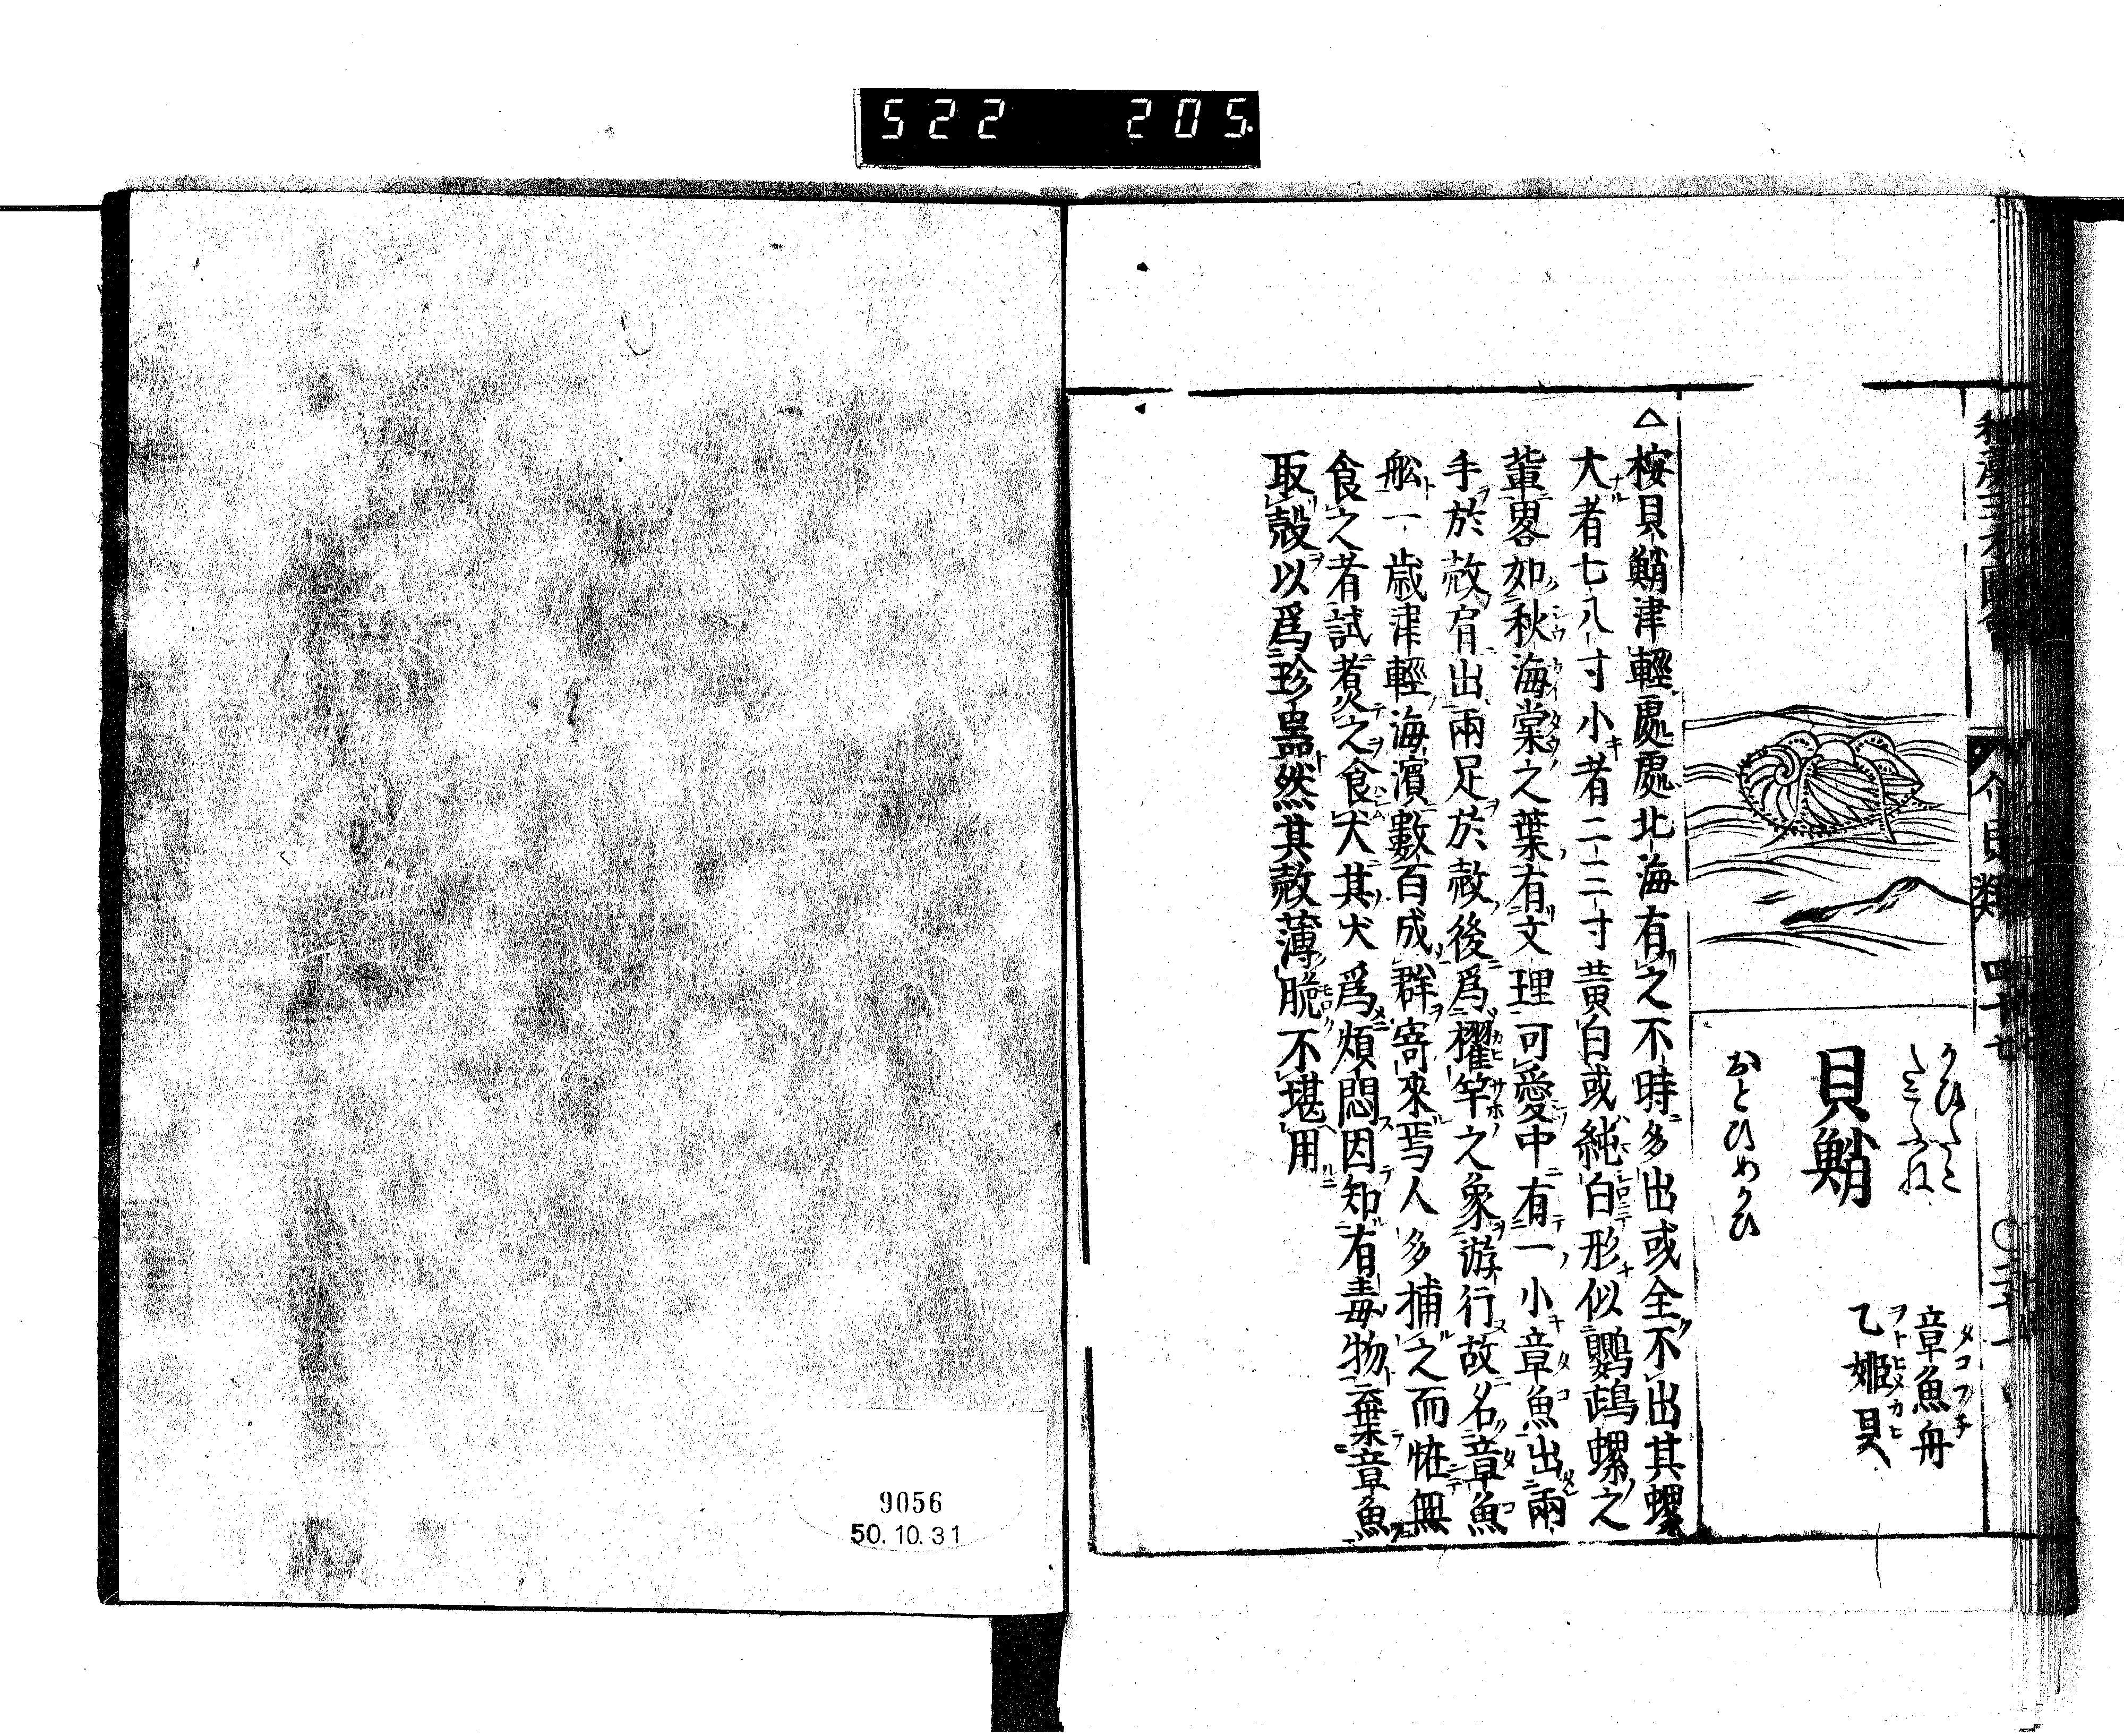 522 205.
介貝類 四十七
かひたこ
たこふね
貝鮹
おとひめかひ
章魚舟
タコフネ
乙姬貝
ヲトヒメカヒ
△桉貝鮹津輕處處北海有之不時多出或全不出其螺
大者七八寸小者二三寸黃白或純白形似鸚鵡螺之
軰畧如秋海棠之葉有文理可愛中有一小章魚出兩
手於殼肩出兩足於殼後爲櫂竿之象游行故名章魚
舩一歳津輕海濱數百成群寄來焉人多捕之而恠無
食之者試煑之食犬其犬爲煩悶因知有毒物棄章魚
取殼以爲珍噐然其殼薄脆不堪用
9056
50.10.31